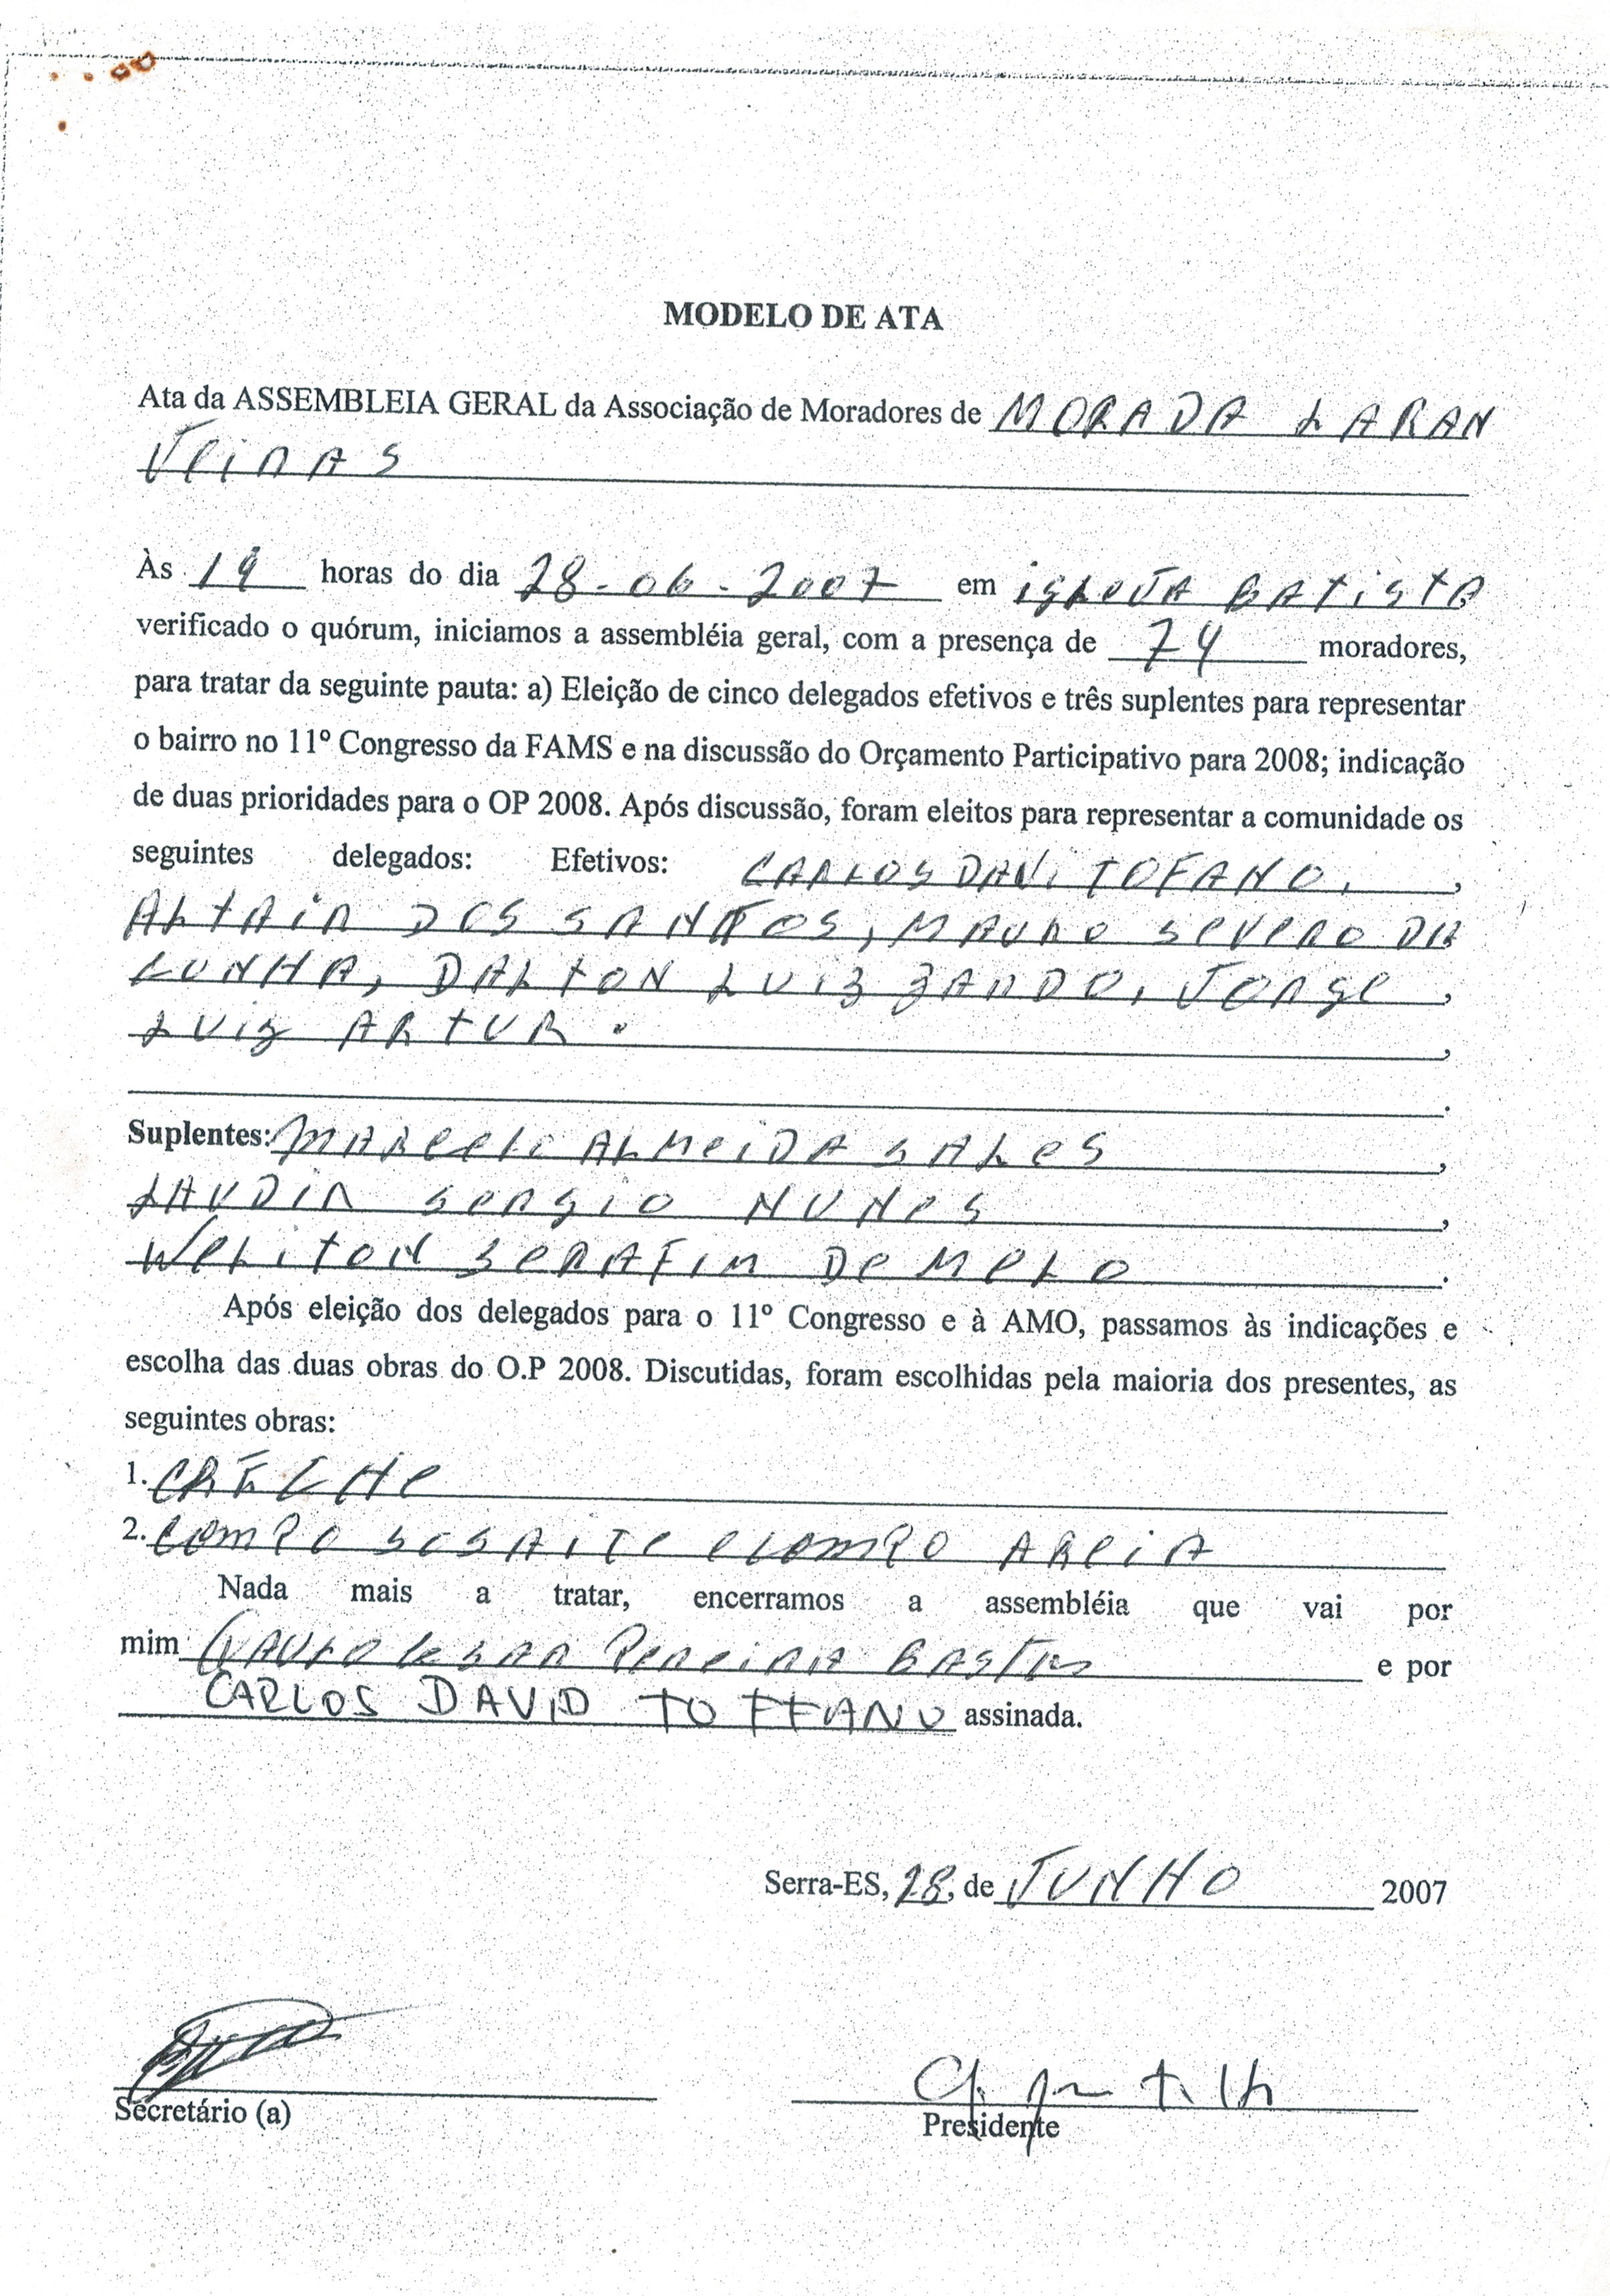 MODELO DE ATA
Ata da ASSEMBLEIA GERAL da Associação de Moradores de MORADA LARAN
JeirAS
Às 19 horas do dia 28-06-2007 em igLeJA BAtistA
verificado o quórum, iniciamos a assembléia geral, com a presença de 74 moradores,
para tratar da seguinte pauta: a) Eleição de cinco delegados efetivos e três suplentes para representar
o bairro no 11º Congresso da FAMS e na discussão do Orçamento Participativo para 2008; indicação
de duas prioridades para o OP 2008. Após discussão, foram eleitos para representar a comunidade os
seguintes delegados: Efetivos: CARLOS DAVi TOFANO. ,
ALtAir DOS SANTOS, MAURO SeVeRO DA
CUNHA, DALtON LUiz ZANDO, JORge ,
LUiz ARtUR. ,
.
Suplentes: MARceLo ALMeiDA SALeS ,
LAUDIR SeRgiO NUNeS ,
WeLitoN SeRAFiM De MeLO .
Após eleição dos delegados para o 11º Congresso e à AMO, passamos às indicações e
escolha das duas obras do O.P 2008. Discutidas, foram escolhidas pela maioria dos presentes, as
seguintes obras:
1. CRECHe
2. comPO SOSAITe e comPO AReiA
Nada mais a tratar, encerramos a assembléia que vai por
mim PAULO CeSAR PeReiRA BAStos e por
CARLOS DAVID TOFFANO assinada.
Serra-ES, 28, de JUNHO 2007
Secretário (a)
Presidente